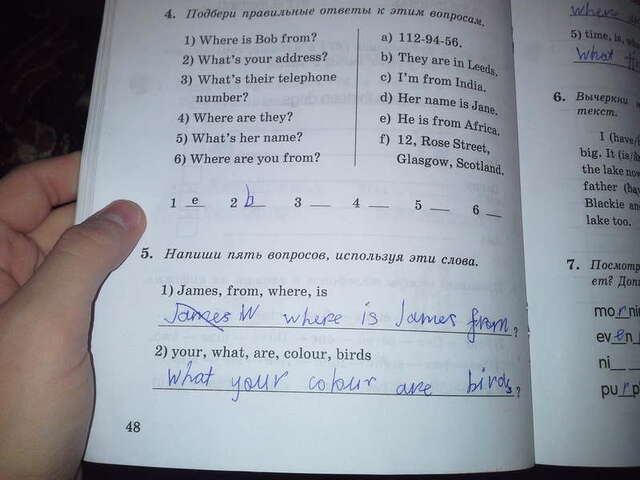 4. Подбери правильные ответы к этим вопросам.
1) Where is Bob from?
2) What's your address?
3) What's their telephone
number?
4) Where are they?
5) What's her name?
6) Where are you from?
a) 112-94-56.
b) They are in Leeds.
c) I'm from India.
d) Her name is Jane.
e) He is from Africa.
f) 12, Rose Street,
Glasgow, Scotland.
1 e 2 b 3 __ 4 __ 5 __ 6 __
5. Напиши пять вопросов, используя эти слова.
1) James, from, where, is
James W where is James from?
2) your, what, are, colour, birds
What your colour are birds?
48
where
5) time, is,
What
6. Вычеркни
текст.
1 (have/
big. It (is/
the lake now
father (ha
Blackie an
lake too.
7. Посмотр
ет? Доп
mornin
even
ni
purp